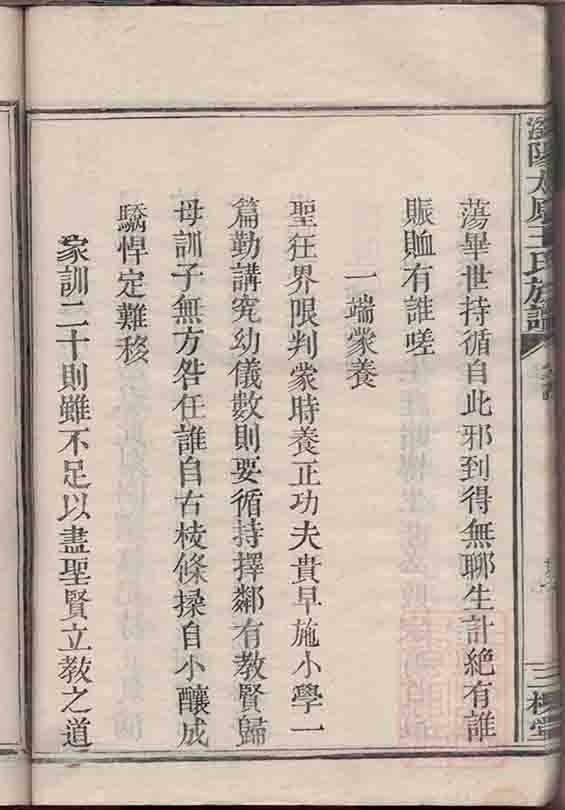 瀏陽太原王氏族譜
三槐堂
蕩畢世持循自此邪到得無聊生計絕有誰
賑賉有誰嗟
一端蒙養
聖狂界限判蒙時養正功夫貴早施小學一
篇勤講究幼儀數則要循持擇鄰有教賢歸
母訓子無方咎任誰自古枝條揉自小釀成
驕悍定難移
家訓二十則雖不足以盡聖賢立教之道